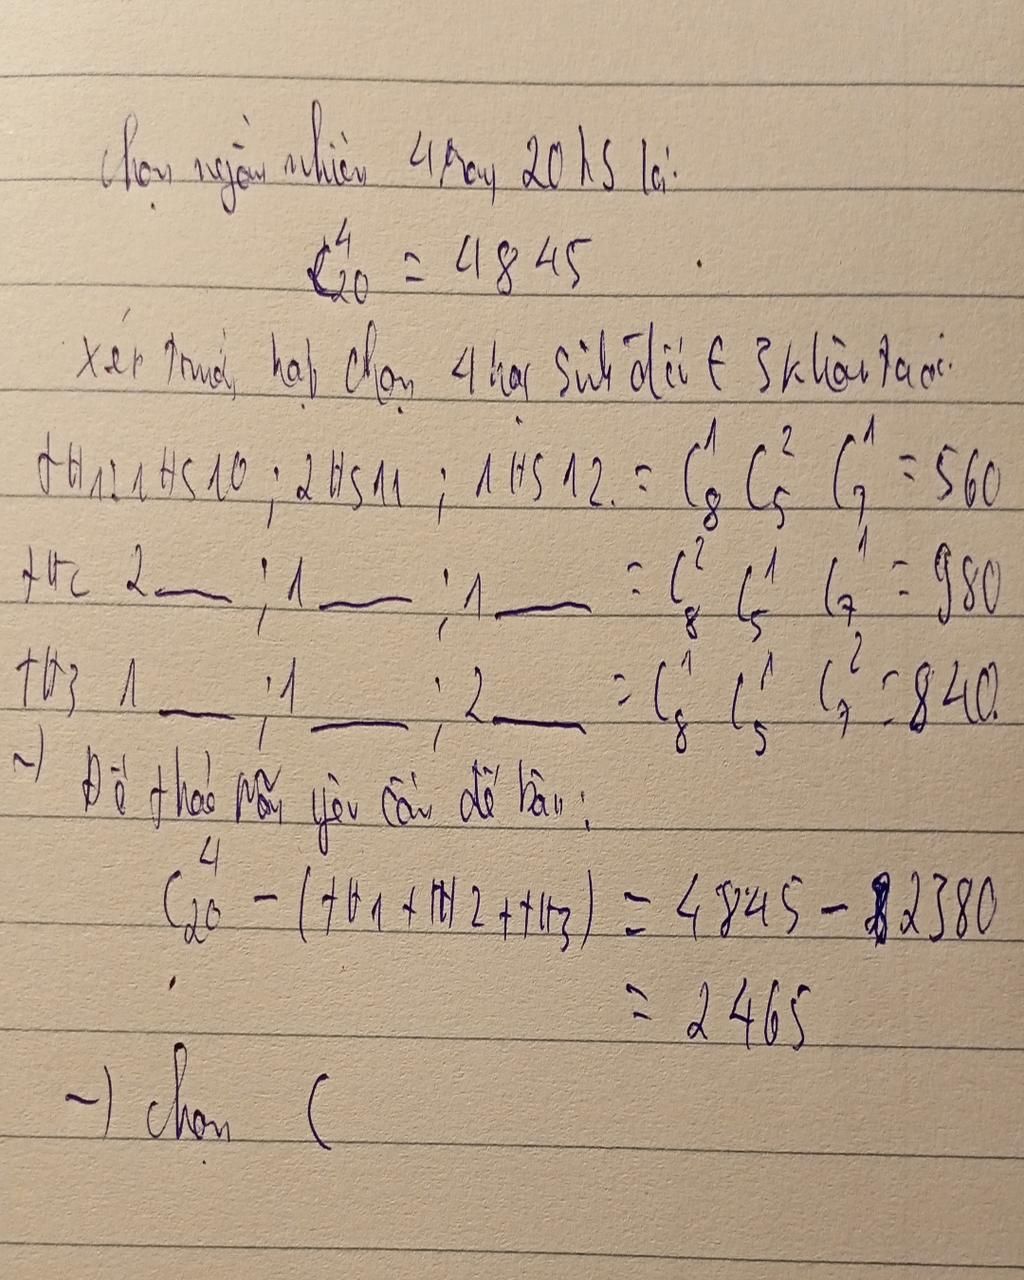 chọn ngẫu nhiên 4 trong 20 hs là:
C⁴₂₀ = 4845
xét trường hợp chọn 4 học sinh đều ∈ 3 khối ta có:
TH1: 1HS10 ; 2HS11 ; 1HS12. = C¹₈ C²₅ C¹₇ = 560
TH2 2___ ; 1___ ; 1___ = C²₈ C¹₅ C¹₇ = 980
TH3 1___ ; 1___ ; 2___ = C¹₈ C¹₅ C²₇ = 840.
→) Để thoả mãn yêu cầu đề bài:
C⁴₂₀ - (TH1 + TH2 + TH3) = 4845 - 2380
= 2465
→) chọn (